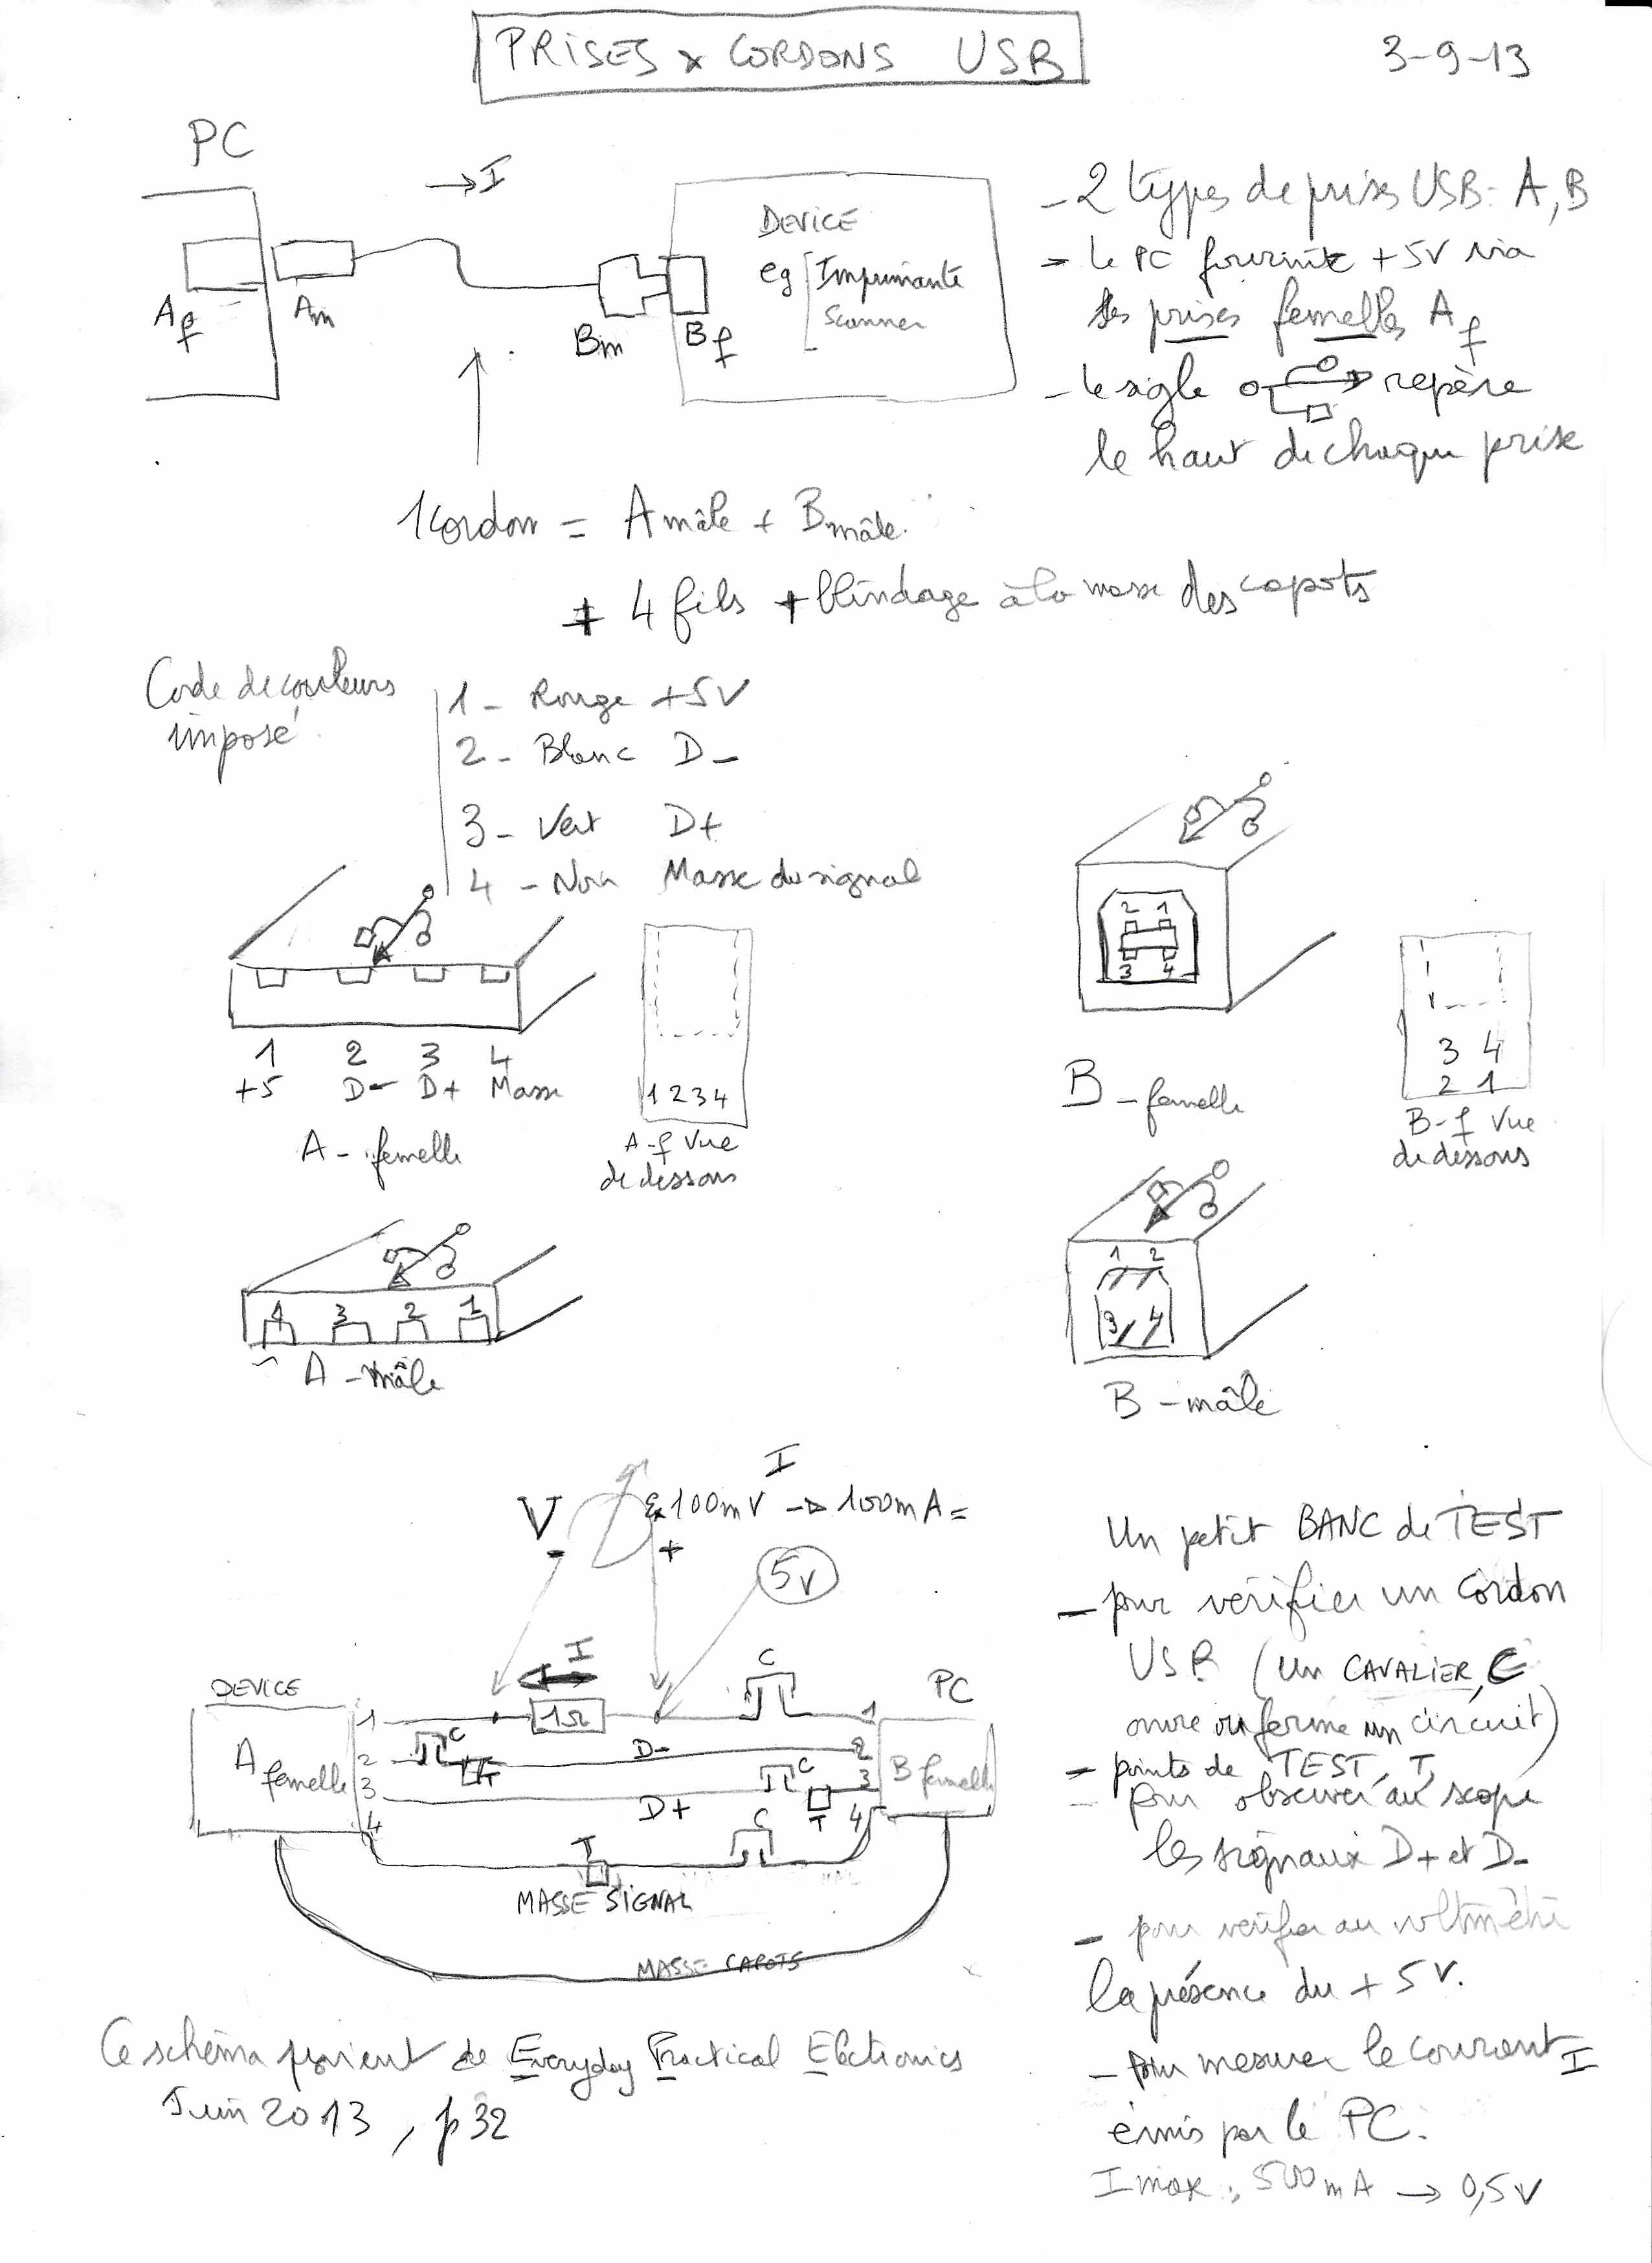 PRISES & CORDONS USB
3-9-13
PC
→ I
Af
Am
Bm
Bf
DEVICE
eg Imprimante
Scanner
- 2 types de prises USB: A, B
- le PC fournit +5V via
ses prises femelles Af
- le sigle repère
le haut de chaque prise
1 cordon = A mâle + B mâle.
+ 4 fils + blindage à la masse des capots
Code de couleurs
imposé
1 - Rouge +5V
2 - Blanc D-
3 - Vert D+
4 - Noir Masse du signal
1 2 3 4
+5 D- D+ Masse
A - femelle
1 2 3 4
A-f Vue
de dessous
2 1
3 4
B - femelle
3 4
2 1
B-f Vue
de dessous
4 3 2 1
A - mâle
1 2
3 4
B - mâle
I
V 100mV → 100mA =
- +
5V
I
C
DEVICE
PC
1 1Ω 1
A femelle
B femelle
C
2 T D- 2
3 D+ C 3
T
4 T C 4
MASSE SIGNAL
MASSE CAPOTS
Un petit BANC de TEST
- pour vérifier un cordon
USB (un CAVALIER, C
ouvre ou ferme un circuit)
- points de TEST, T,
pour observer au scope
les signaux D+ et D-
- pour vérifier au voltmètre
la présence du +5V.
- pour mesurer le courant I
émis par le PC.
I max : 500mA → 0,5V
Ce schéma provient de Everyday Practical Electronics
Juin 2013, p32